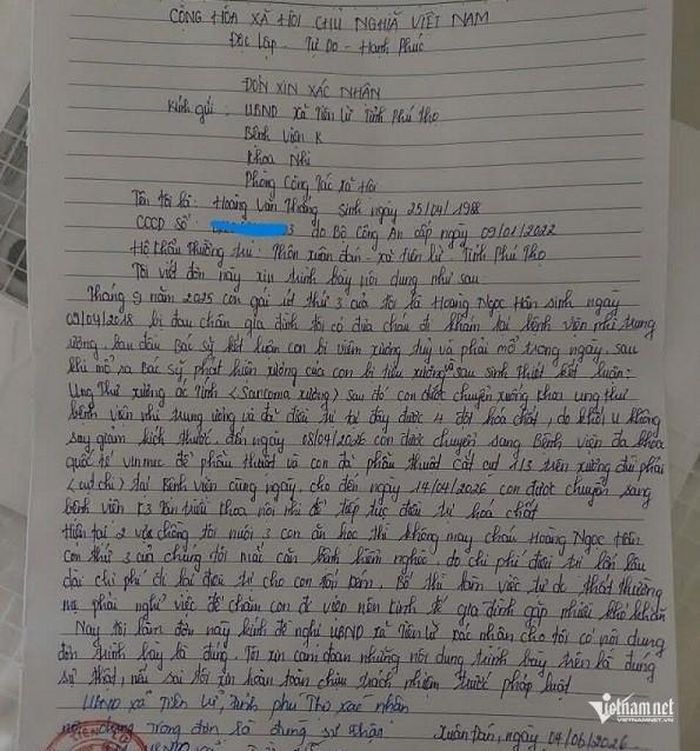 CỘNG HÒA XÃ HỘI CHỦ NGHĨA VIỆT NAM
Độc lập - Tự Do - Hạnh Phúc
ĐƠN XIN XÁC NHẬN
Kính gửi: UBND xã Tiên Lữ Tỉnh Phú Thọ
Bệnh Viện K
Khoa Nhi
Phòng Công Tác Xã Hội
Tên tôi là: Hoàng Văn Thắng Sinh ngày 25/04/1988
CCCD Số: 3 do Bộ Công An cấp ngày 09/01/2022
Hộ khẩu thường trú: Thôn xuân đán - xã tiên lữ - Tỉnh Phú Thọ
Tôi viết đơn này xin trình bày nội dung như sau
Tháng 9 năm 2025 con gái út thứ 3 của tôi là Hoàng Ngọc Hân sinh ngày
09/04/2018 bị đau chân gia đình tôi có đưa cháu đi khám tại bệnh viện nhi trung
ương. ban đầu Bác sỹ kết luận con bị viêm xương tuỷ và phải mổ trong ngày. sau
khi mổ ra Bác sỹ phát hiện xương của con bị tiêu xương sau sinh thiết kết luận:
Ung Thư xương ác tính (Sarcoma xương) sau đó con được chuyển xuống khoa ung thư
bệnh viện nhi trung ương và đã điều trị tại đây được 4 đợt hóa chất, do khối u không
suy giảm kích thước. đến ngày 08/04/2026 con được chuyển sang Bệnh viện đa khoa
quốc tế vinmec để phẫu thuật và con đã phẫu thuật cắt cụt 1/3 trên xương đùi phải
(cụt chi) tại Bệnh viện cùng ngày. cho đến ngày 14/04/2026 con được chuyển sang
bệnh viện K3 Tân triều khoa nội nhi để tiếp tục điều trị hoá chất
Hiện tại 2 vợ chồng tôi nuôi 3 con ăn học thì không may cháu Hoàng Ngọc Hân
con thứ 3 của chúng tôi mắc căn bệnh hiểm nghèo, do chi phí điều trị lớn lâu
dài chi phí đi lại điều trị cho con tốn kém. Bố thì làm việc tự do thất thường
mẹ phải nghỉ việc để chăm con đi viện nên kinh tế gia đình gặp nhiều khó khăn
Nay tôi làm đơn này kính đề nghị UBND xã Tiên Lữ xác nhận cho tôi có nội dung
đơn trình bày là đúng. Tôi xin cam đoan những nội dung trình bày trên là đúng
sự thật, nếu sai tôi xin hoàn toàn chịu trách nhiệm trước pháp luật
UBND xã Tiên Lữ, tỉnh Phú Thọ xác nhận
nội dung trong đơn là đúng sự thật
Xuân Đán, ngày 04/06/2026
UBND xã
vietnamnet
VIETNAMNET.VN